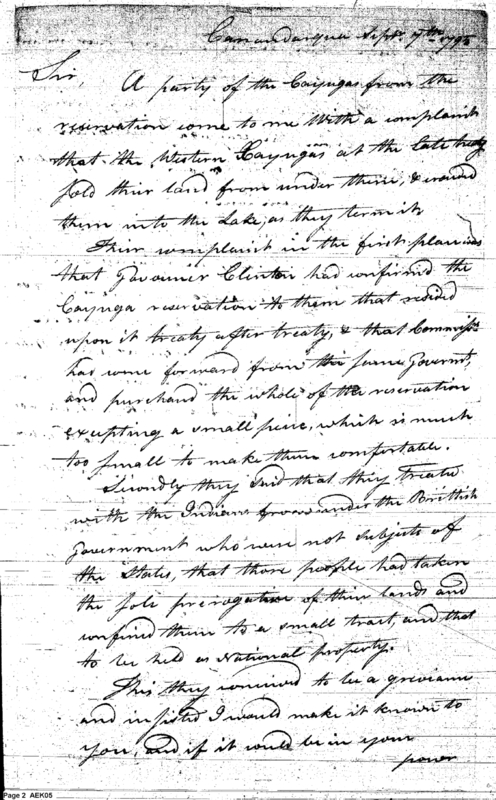 Canandarqua Septr. 7th 1795
Sir,
A party of the Caiyugas from the
reservation come to me with a complaint
that the Western Kayugas at the late treaty
sold their land from under them, & crowded
them into the Lake, as they term it
Their complaint in the first place was
that Govournier Clinton had confirmed the
Caiyuga reservation to them that resided
upon it treaty after treaty, & that Commissrs
had come forward from the same Governmt,
and purchasd the whole of the reservation
excepting a small peice, which is much
too small to make them comfortable.
Secondly they said that they treated
with the Indians from under the Brittish
Government who were not subjects of
the States, that those people had taken
the sole prerogative of their lands and
confined them to a small tract, and that
to be held as National property.
This they conceived to be a greviance
and insisted I would make it known to
you, and if it would be in your
power
Page 2 AEK05